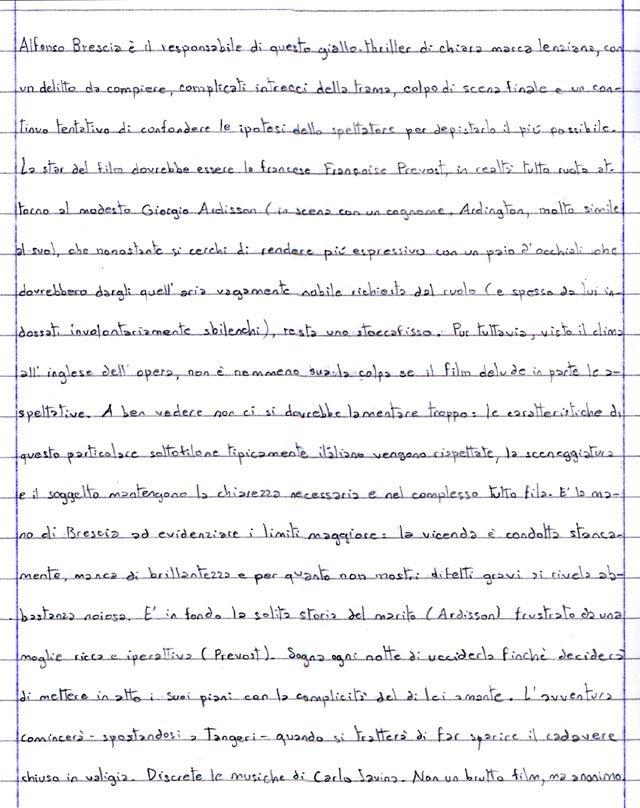 Alfonso Brescia è il responsabile di questo giallo-thriller di chiara marca lenziana, con
un delitto da compiere, complicati intrecci della trama, colpo di scena finale e un con-
tinuo tentativo di confondere le ipotesi dello spettatore per depistarlo il più possibile.
La star del film dovrebbe essere la francese Françoise Prevost, in realtà tutto ruota at-
torno al modesto Giorgio Ardisson (in scena con un cognome, Ardington, molto simile
al suo), che nonostante si cerchi di rendere più espressivo con un paio d'occhiali che
dovrebbero dargli quell'aria vagamente nobile richiesta dal ruolo (e spesso da lui in-
dossati involontariamente sbilenchi), resta uno stoccafisso. Pur tuttavia, visto il clima
all'inglese dell'opera, non è nemmeno sua la colpa se il film delude in parte le a-
spettative. A ben vedere non ci si dovrebbe lamentare troppo: le caratteristiche di
questo particolare sottofilone tipicamente italiano vengono rispettate, la sceneggiatura
e il soggetto mantengono la chiarezza necessaria e nel complesso tutto fila. E' la ma-
no di Brescia ad evidenziare i limiti maggiore: la vicenda è condotta stanca-
mente, manca di brillantezza e per quanto non mostri difetti gravi si rivela ab-
bastanza noiosa. E' in fondo la solita storia del marito (Ardisson) frustrato da una
moglie ricca e iperattiva (Prevost). Sogna ogni notte di ucciderla finchè deciderà
di mettere in atto i suoi piani con la complicità del di lei amante. L'avventura
comincerà - spostandosi a Tangeri - quando si tratterà di far sparire il cadavere
chiuso in valigia. Discrete le musiche di Carlo Savina. Non un brutto film, ma anonimo.